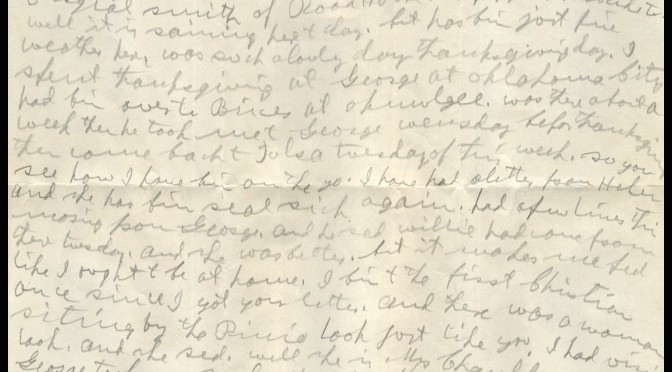 smith of
well it is raining hear to day. but has bin just fine
weather hear, was such a lovly day thanksgiving day. I
spent thanksgiving at George at Oklahoma City
had bin over to Brices at okmulgee. was there about a
week then he took me to George wensday befor thanksgiving
then come back to Tulsa tuesday of this week. so you
see how I have bin on the go. I have had a letter from Helen
and she has bin real sick again. had a few lines this
morning from George. and he sed willie had one from
there tuesday. and she was better. but it makes me feel
like I ought to be at home. I bin to the First Christian
once since I got your letter. and there was a woman
siting by the Piano look just like you, I had
look. and she sed. well she is Mrs
George